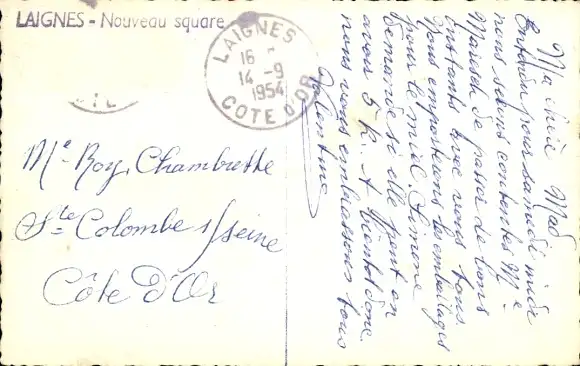 LAIGNES - Nouveau square
LAIGNES
16
14 -9
1954
COTE D'OR
Me Roy Chambrette
Ste Colombe s/seine
Côte D'Or
Ma chère Mad
Entendu pour samedi midi
nous serons contentes Me
Marisol de passer de bons
instants avec vous tous.
Nous emporterons les emballages
pour le miel. Simone
demande si elle peut en
avoir 5 k. A bientôt donc
nous vous embrassons tous
Valentine